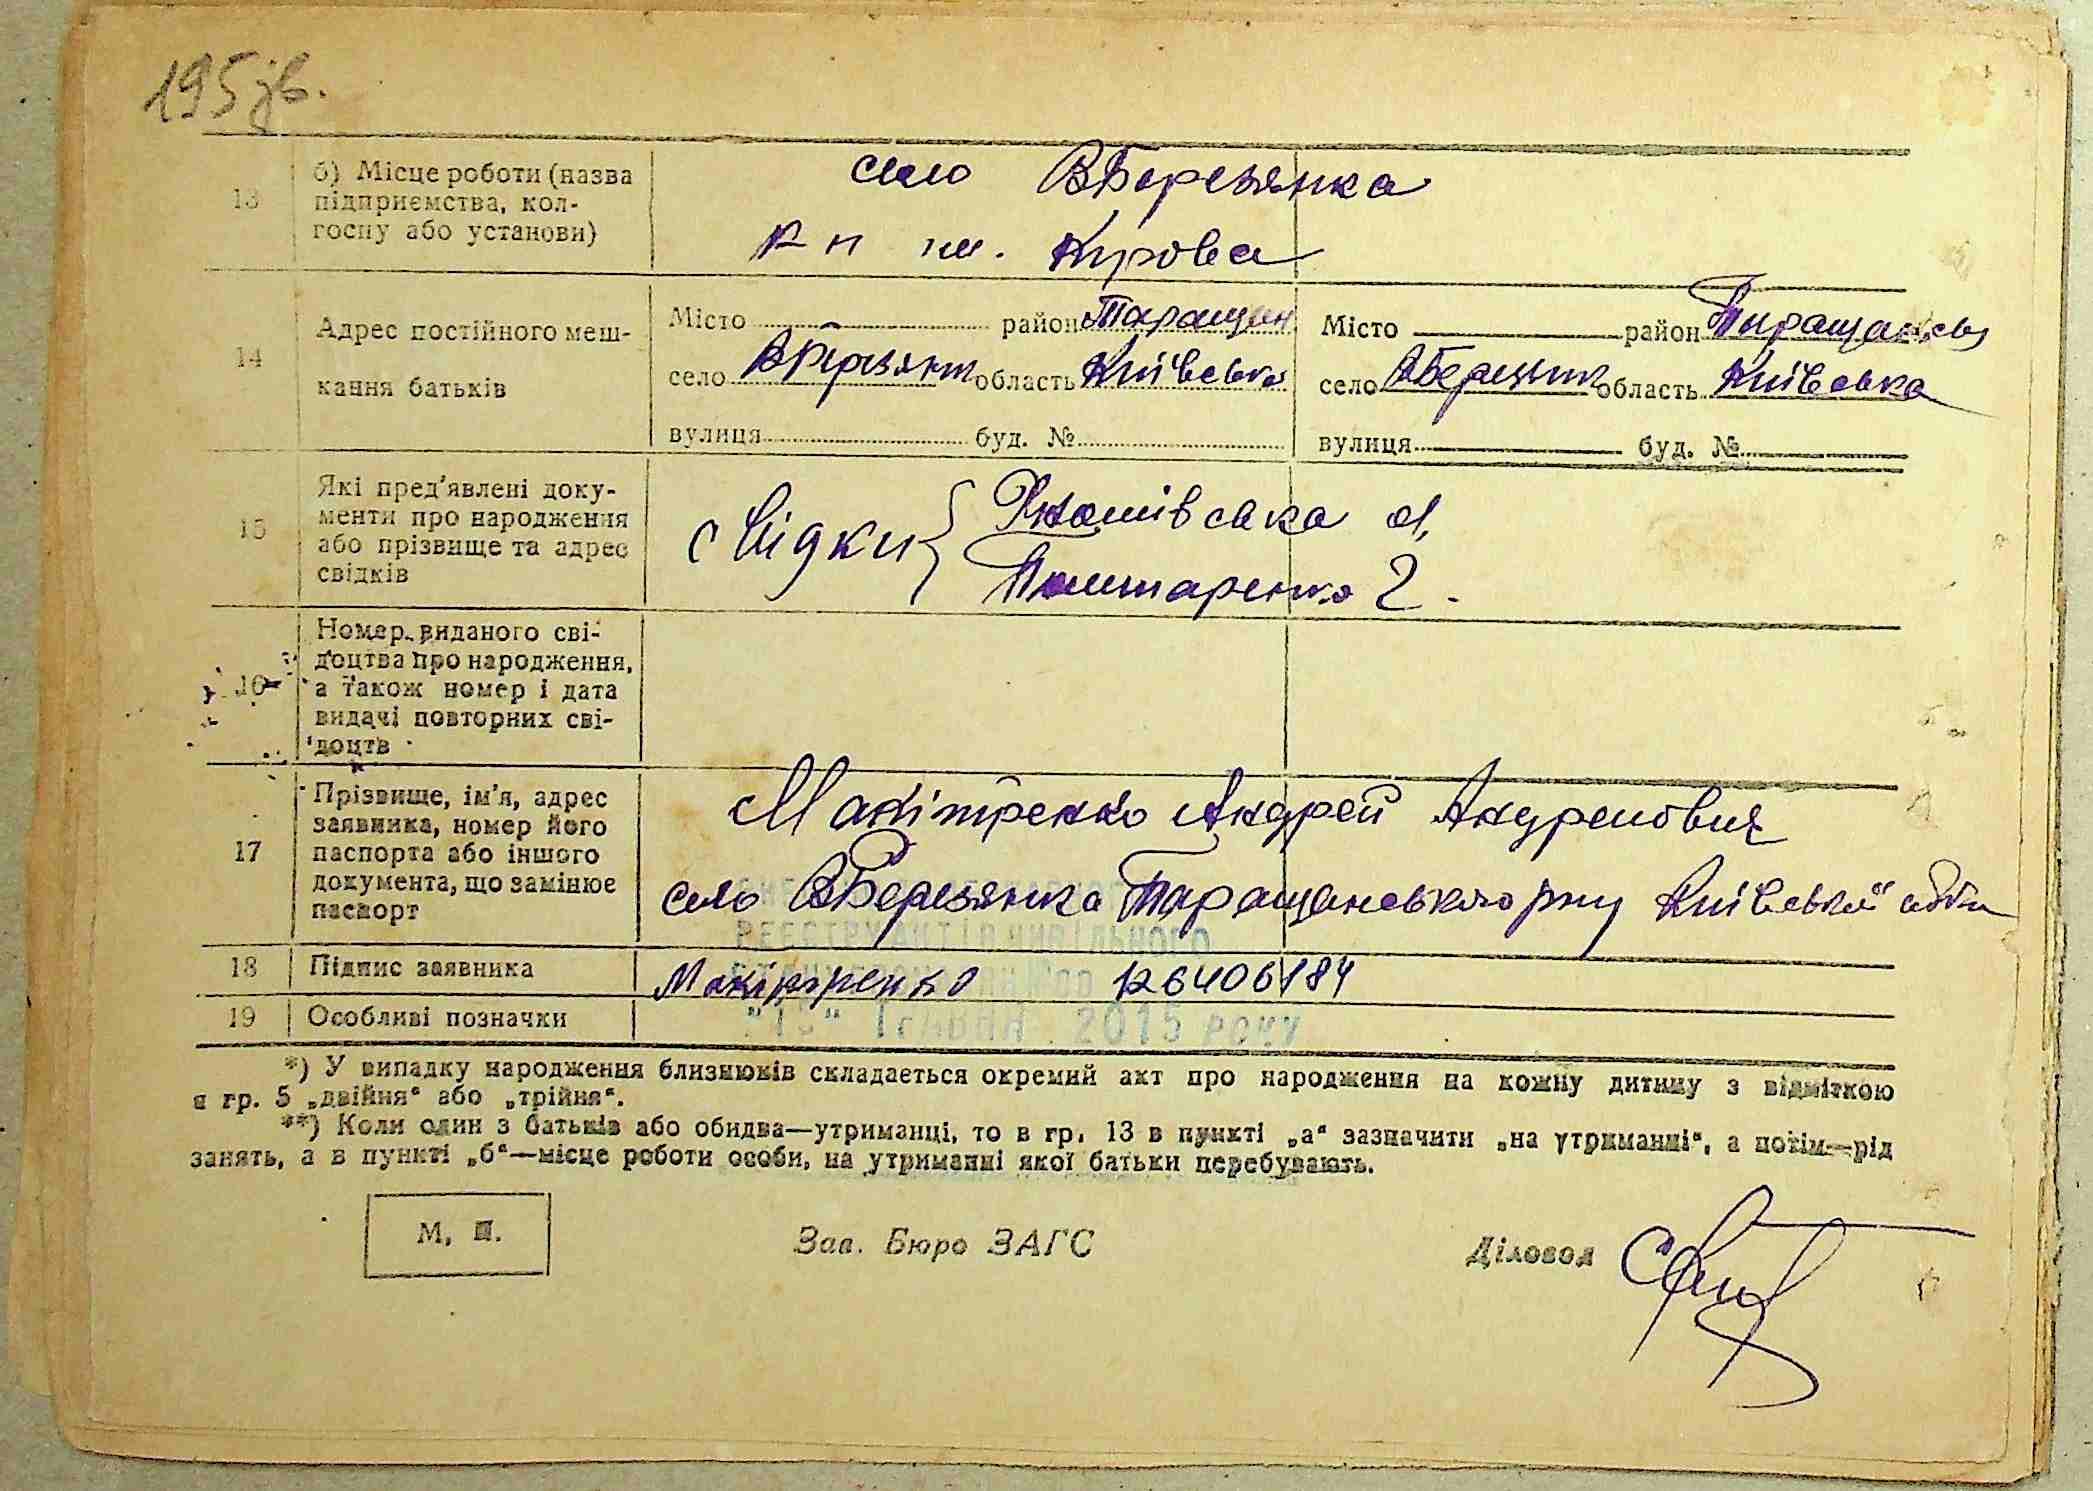 195 зв.
13
б) Місце роботи (назва підприємства, колгоспу або установи)
село ВБерезянка
к п им. Кірова
14
Адрес постійного мешкання батьків
Місто район Таращан
село ВБерезянк область Київська
вулиця буд. №
Місто район Таращанськ
село ВБерезянк область Київська
вулиця буд. №
15
Які пред'явлені документи про народження або прізвище та адрес свідків
свідки
Поштаренко Г.
16
Номер виданого свідоцтва про народження, а також номер і дата видачі повторних свідоцтв
17
Прізвище, ім'я, адрес заявника, номер його паспорта або іншого документа, що замінює паспорт
Макітренко Андрей Андреєвич
село ВБерезянка Таращанського рну Київської обл
РЕЄСТРУ АКТІВ ЦИВІЛЬНОГО
ТРАВНЯ 2015 РОКУ
18
Підпис заявника
Макітренко
126406184
19
Особливі позначки
*) У випадку народження близнюків складається окремий акт про народження на кожну дитину з відміткою
в гр. 5 „двійня“ або „трійня“.
**) Коли один з батьків або обидва—утриманці, то в гр. 13 в пункті „а“ зазначити „на утриманні“, а потім—рід
занять, а в пункті „б“—місце роботи особи, на утриманні якої батьки перебувають.
М. П.
Зав. Бюро ЗАГС
Діловод